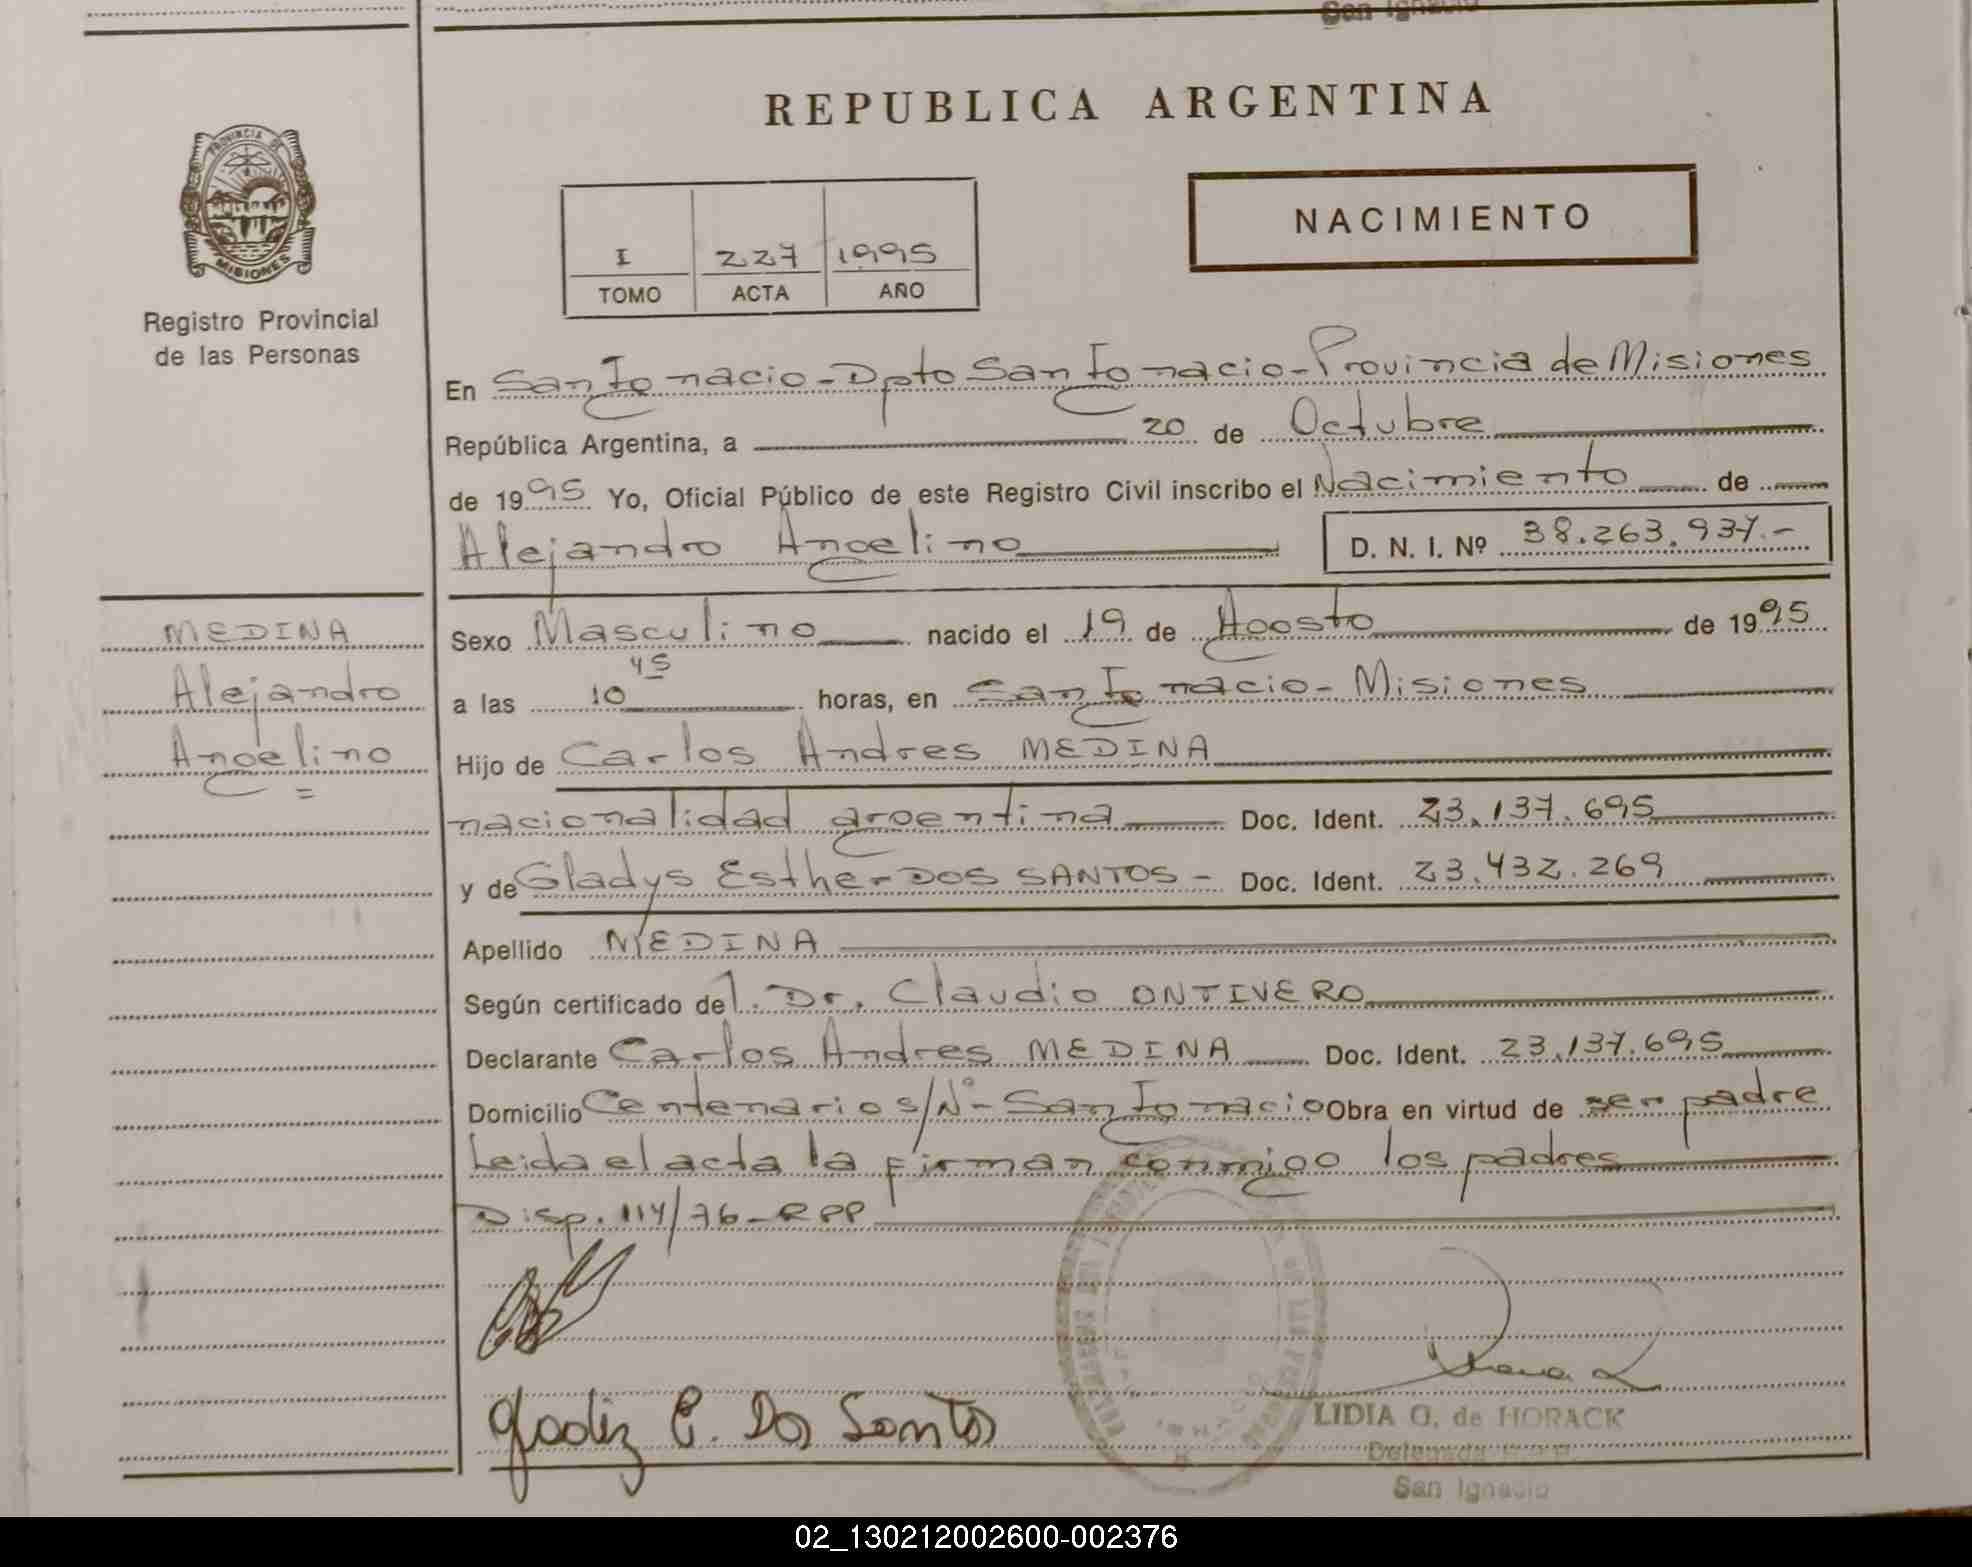 San Ignacio
REPUBLICA ARGENTINA
PROVINCIA DE
MISIONES
Registro Provincial
de las Personas
I 227 1995
TOMO ACTA AÑO
NACIMIENTO
En San Ignacio - Dpto San Ignacio - Provincia de Misiones
República Argentina, a 20 de Octubre
de 1995 Yo, Oficial Público de este Registro Civil inscribo el Nacimiento de
Alejandro Angelino D. N. I. Nº 38.263.937.-
MEDINA
Alejandro
Angelino
Sexo Masculino nacido el 19 de Agosto de 1995
a las 10 45 horas, en San Ignacio - Misiones
Hijo de Carlos Andres MEDINA
nacionalidad argentina Doc. Ident. 23.137.695
y de Gladys Esther DOS SANTOS - Doc. Ident. 23.432.269
Apellido MEDINA
Según certificado del. Dr. Claudio ONTIVERO
Declarante Carlos Andres MEDINA Doc. Ident. 23.137.695
Domicilio Centenario s/Nº - San Ignacio Obra en virtud de ser padre
Leida el acta la firman conmigo los padres
Disp. 114/76 - RPP
Gladiz E. Dos Santos
LIDIA O. de HORACK
Delegada R.P.P.
San Ignacio
02_130212002600-002376